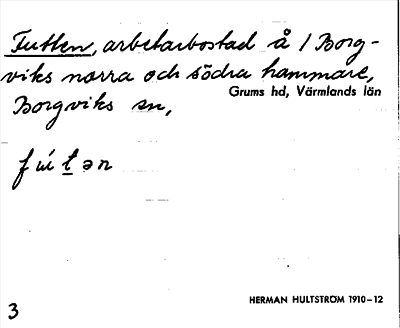 Futten, arbetarbostad å / Borg-
viks norra och södra hammare,
Grums hd, Värmlands län
Borgviks sn,
fú t ə n
3
HERMAN HULTSTRÖM 1910–12